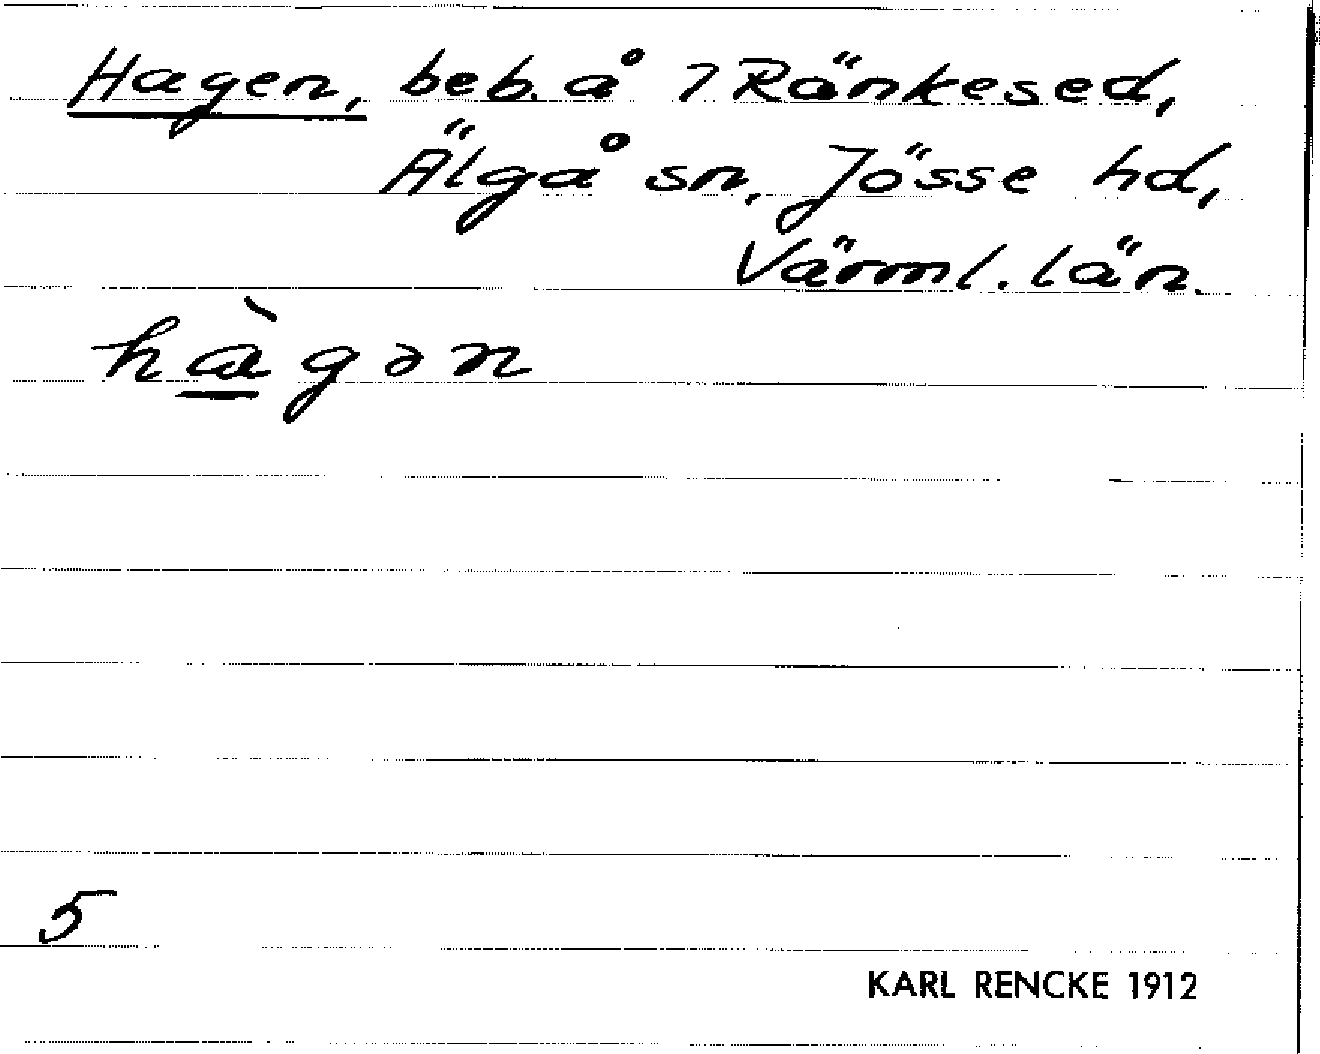 Hagen, beb. å 7 Ränkesed,
Älgå sn, Jösse hd,
Värml. län.
hàgən
5
KARL RENCKE 1912